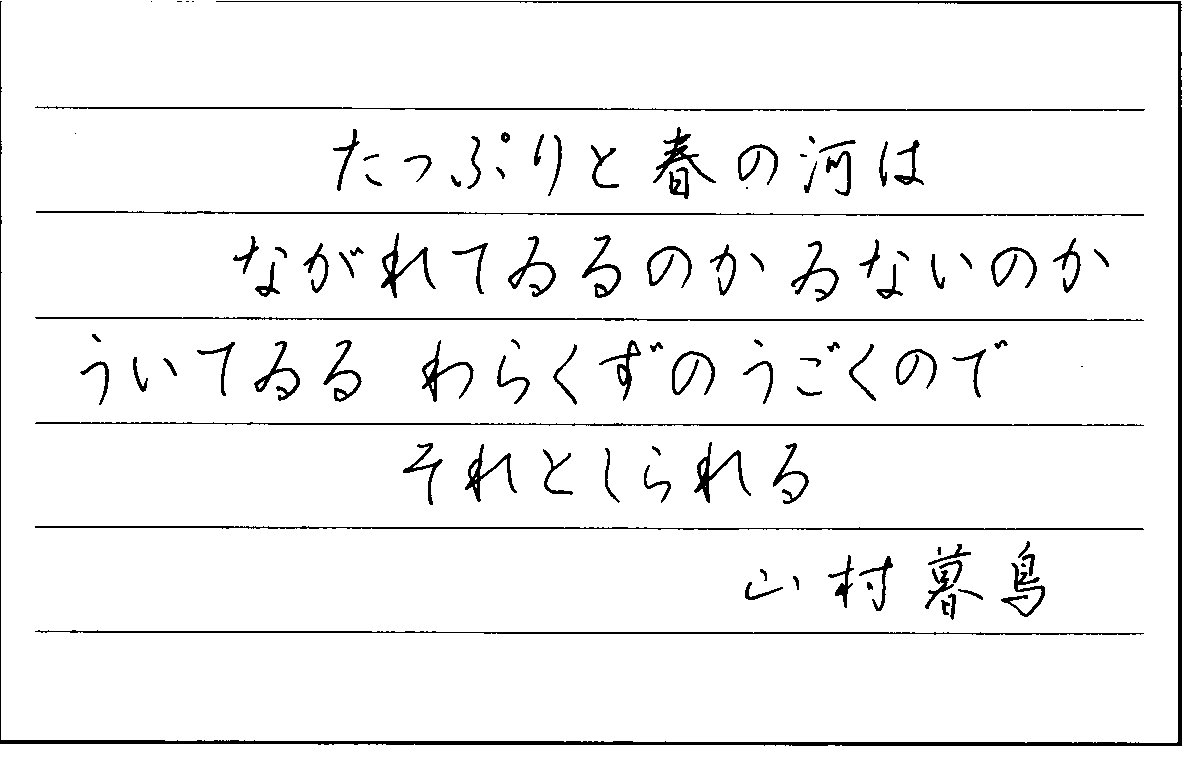 たっぷりと春の河は
ながれてゐるのか ゐないのか
ういてゐる わらくずのうごくので
それとしられる
山村暮鳥